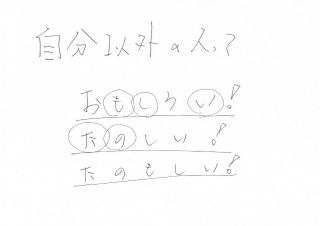 自分以外の人って?
おもしろい!
たのしい!
たのもしい!